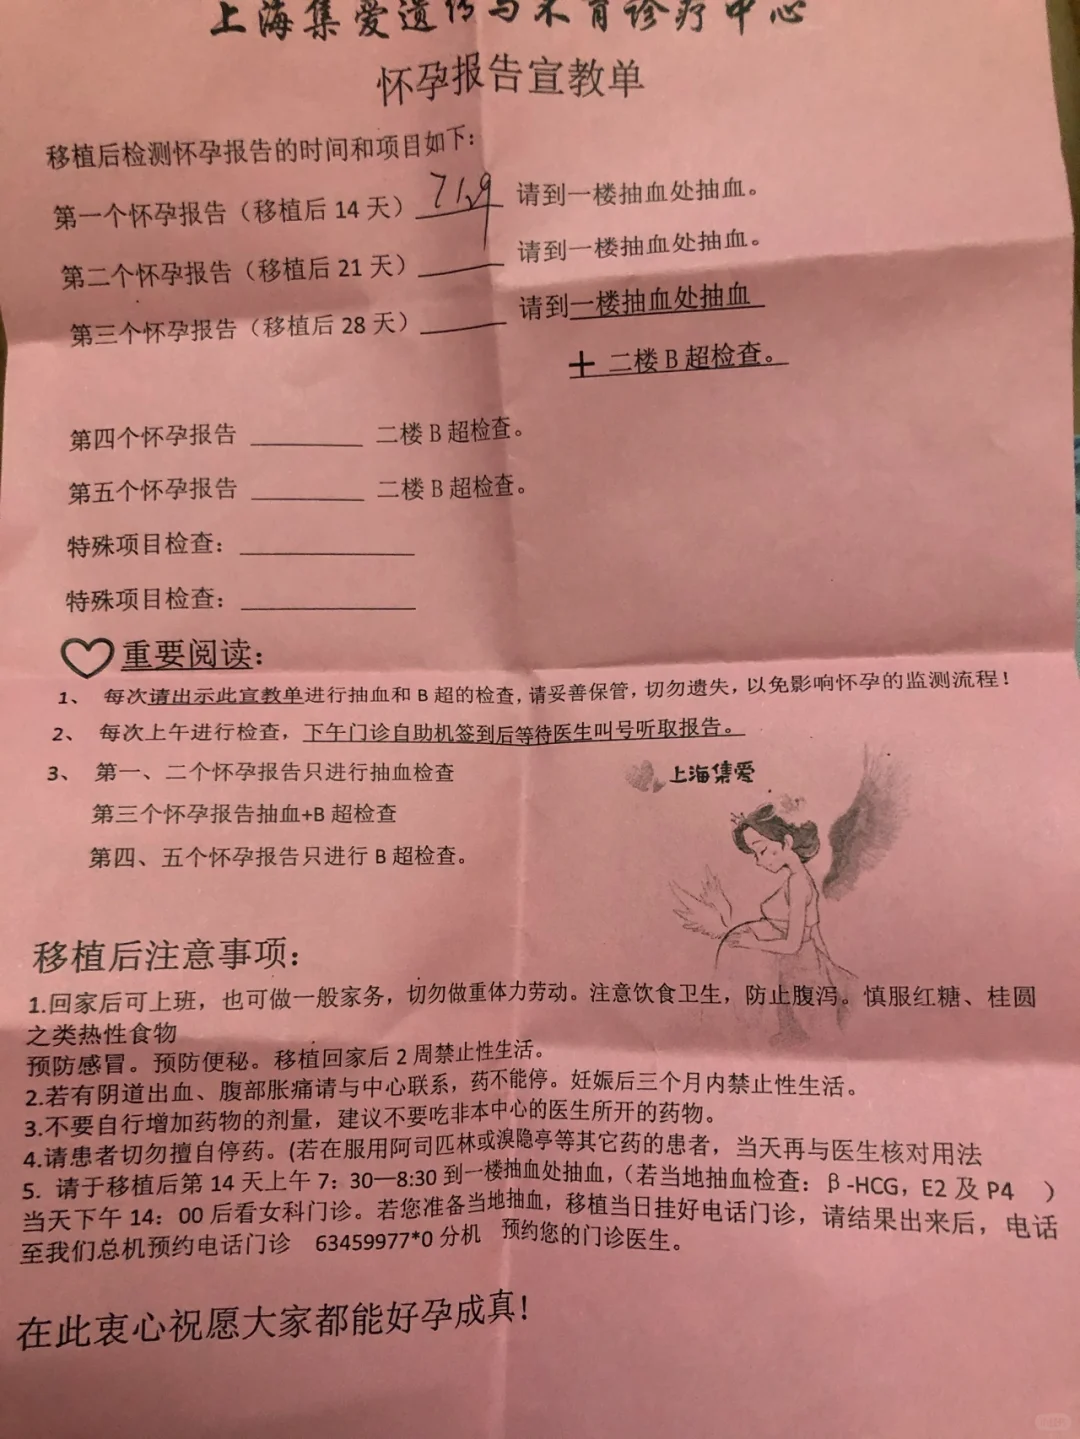 上海集爱遗传与不育诊疗中心
怀孕报告宣教单
移植后检测怀孕报告的时间和项目如下：
第一个怀孕报告（移植后 14 天） 请到一楼抽血处抽血。
第二个怀孕报告（移植后 21 天）______ 请到一楼抽血处抽血。
第三个怀孕报告（移植后 28 天）______ 请到一楼抽血处抽血
＋ 二楼 B 超检查。
第四个怀孕报告 ________ 二楼 B 超检查。
第五个怀孕报告 ________ 二楼 B 超检查。
特殊项目检查：____________
特殊项目检查：____________
重要阅读：
1、 每次请出示此宣教单进行抽血和 B 超的检查，请妥善保管，切勿遗失，以免影响怀孕的监测流程！
2、 每次上午进行检查，下午门诊自助机签到后等待医生叫号听取报告。
3、 第一、二个怀孕报告只进行抽血检查
上海集爱
第三个怀孕报告抽血+B 超检查
第四、五个怀孕报告只进行 B 超检查。
移植后注意事项：
1.回家后可上班，也可做一般家务，切勿做重体力劳动。注意饮食卫生，防止腹泻。慎服红糖、桂圆
之类热性食物
预防感冒。预防便秘。移植回家后 2 周禁止性生活。
2.若有阴道出血、腹部胀痛请与中心联系，药不能停。妊娠后三个月内禁止性生活。
3.不要自行增加药物的剂量，建议不要吃非本中心的医生所开的药物。
4.请患者切勿擅自停药。(若在服用阿司匹林或溴隐亭等其它药的患者，当天再与医生核对用法
5. 请于移植后第 14 天上午 7：30—8:30 到一楼抽血处抽血，（若当地抽血检查：β-HCG，E2 及 P4 ）
当天下午 14：00 后看女科门诊。若您准备当地抽血，移植当日挂好电话门诊，请结果出来后，电话
至我们总机预约电话门诊 63459977*0 分机 预约您的门诊医生。
在此衷心祝愿大家都能好孕成真！